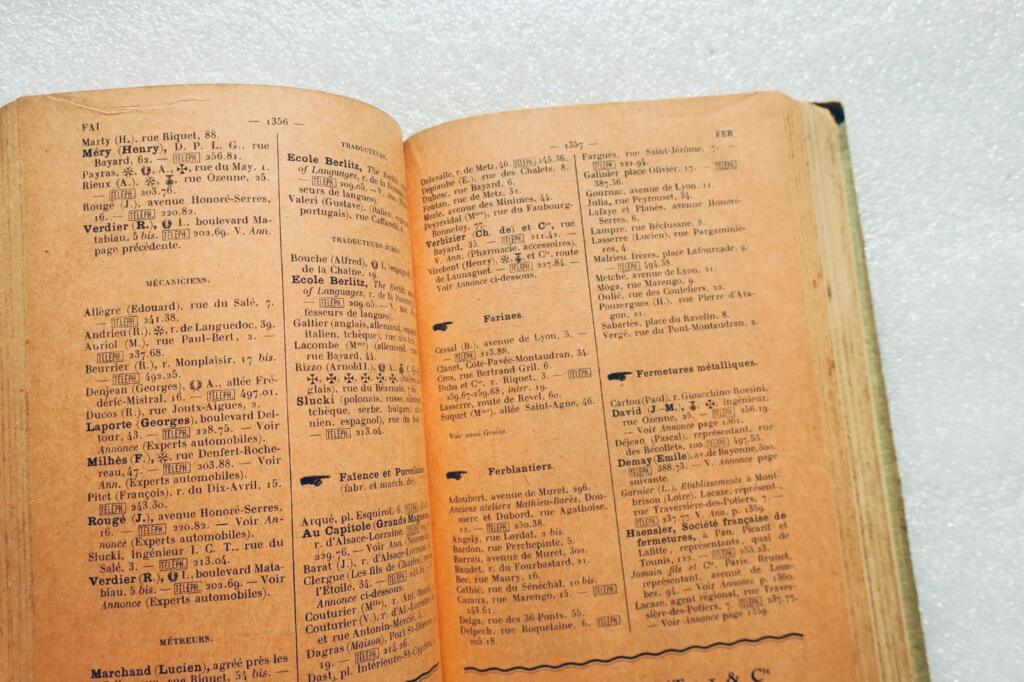 FAI
— 1356 —
Marty (H.), rue Riquet, 88.
Méry (Henry), D. P. L. G., rue
Bayard, 62. — TÉLÉPH. 256.81.
Payras, A., rue du May, 1.
Rieux (A.), rue Ozenne, 25.
— TÉLÉPH. 203.76.
Rouge (J.), avenue Honoré-Serres,
16. — TÉLÉPH. 220.82.
Verdier (R.), I., boulevard Ma-
tabiau, 5 bis. TÉLÉPH. 202.69. V. Ann.
page précédente.
MÉCANICIENS.
Allègre (Edouard), rue du Salé, 7.
— TÉLÉPH. 241.38.
Andrieu (R.), r. de Languedoc, 39.
Auriol (M.), rue Paul-Bert, 2. —
TÉLÉPH. 237.68.
Beurrier (R.), r. Monplaisir, 17 bis.
— TÉLÉPH. 492.25.
Denjean (Georges), A., allée Fré-
déric-Mistral, 16. — TÉLÉPH. 497.01.
Ducos (R.), rue Joutx-Aigues, 2.
Laporte (Georges), boulevard Del-
tour, 43. — TÉLÉPH. 228.75. — Voir
Annonce (Experts automobiles).
Milhès (F.), rue Denfert-Roche-
reau, 47. — TÉLÉPH. 203.88. — Voir
Ann. (Experts automobiles).
Pitet (François), r. du Dix-Avril, 15.
— TÉLÉPH. 243.30.
Rougé (J.), avenue Honoré-Serres,
16. — TÉLÉPH. 220.82. — Voir An-
nonce (Experts automobiles).
Slucki, Ingénieur I. C. T., rue du
Salé, 3. — TÉLÉPH. 213.04.
Verdier (R.), I., boulevard Mata-
biau, 5 bis. — TÉLÉPH. 202.69. — Voir
Annonce (Experts automobiles).
MÉTREURS.
Marchand (Lucien), agréé près les
rue Riquet, 54 bis. —
TRADUCTEURS.
Ecole Berlitz, The Berlitz
of Languages, r. de la
— TÉLÉPH. 209.05. — V.
seurs de langues).
Valeri (Gustave), (italien,
portugais), rue Caffarelli,
TRADUCTEURS-JURÉS.
Bouche (Alfred), I. (espagnol
de la Chaîne, 19.
Ecole Berlitz, The Berlitz
of Languages, r. de la Pomme
— TÉLÉPH. 209.05. — V.
fesseurs de langues).
Galtier (anglais, allemand, espagnol,
italien, tchèque), rue des
Lacombe (Mme) (allemand,
rue Bayard, 44.
Rizzo (Arnold), I.,
glais), rue du Béarnais,
Slucki (polonais, russe,
tchèque, serbe, bulgare,
nien, espagnol), rue du
— TÉLÉPH. 213.04.
Faïence et Porcelaine
(fabr. et march. de).
Arqué, pl. Esquirol, 6. TÉLÉPH.
Au Capitole (Grands
r. d'Alsace-Lorraine. TÉLÉPH.
229.76. — Voir Ann.
Barat (J.), r. d'Alsace-
Clergue (Les fils de Charles),
l'Etoile, 34. — TÉLÉPH.
Annonce ci-dessous.
Couturier (Mlle), r.
Couturier (V.), r. d'Al.-
et rue Antonin-Mercié,
Dagras (Maison), Port St-
19. — TÉLÉPH. 214.26.
Dast, pl. Intérieure-St-Cyprien
— 1357 —
FER
Delavalle, r. de Metz, 46. TÉLÉPH. 245.36.
Depiaube (E.), rue des Chalets, 8.
Dubosc, rue Bayard, 6.
Fontan, rue de Metz, 32.
Merle, avenue des Minimes, 44.
Peyrevidal (Mme), rue du Faubourg-
Bonnefoy, 77.
Verbizier (Ch. de) et Cie, rue
Bayard, 35. — TÉLÉPH. 211.42. —
V. Ann. (Pharmacie, accessoires).
Virebent (Henry), et Cie, route
de Launaguet. — TÉLÉPH. 227.84. —
Voir Annonce ci-dessous.
Farines
Cessal (B.), avenue de Lyon, 5. —
— TÉLÉPH. 213.88.
Clanet, Côte-Pavée-Montaudran, 34.
Cros, rue Bertrand-Gril, 6.
Duba et Cie, r. Riquet, 3. — TÉLÉPH.
259.67-259.68; inter. 19.
Lasserre, route de Revel, 60.
Suquet (Mme), allée Saint-Agne, 46.
Voir aussi Grains.
Ferblantiers.
Adoubert, avenue de Muret, 296.
Anciens ateliers Mathieu-Barès, Dou-
merc et Dubord, rue Agathoise,
12. — TÉLÉPH. 250.38.
Angely, rue Lordat, 2 bis.
Bardon, rue Perchepinte, 5.
Barrau, avenue de Muret, 302.
Baudet, r. du Fourbastard, 21.
Bec, rue Maury, 16.
Cathié, rue du Sénéchal, 10 bis.
Cazaux, rue Marengo, 15. — TÉLÉPH.
248.61.
Delga, rue des 36-Ponts, 55.
Delpech, rue Roquelaine, 6. TÉLÉPH.
205.18.
Fargues, rue Saint-Jérôme, 7. —
TÉLÉPH. 222.94.
Galinier place Olivier, 17. — TÉLÉPH.
387.36.
Gournac, avenue de Lyon, 11.
Julia, rue Peyrousel, 34.
Lafaye et Planès, avenue Honoré-
Serres, 6.
Lampre, rue Réclusane, 8.
Lasserre (Lucien), rue Pargaminiè-
res, 4.
Malrieu frères, place Lafourcade, 9.
— TÉLÉPH. 494.38.
Metché, avenue de Lyon, 21.
Moga, rue Marengo, 9.
Oulié, rue des Couteliers, 22.
Pouzergues (H.), rue Pierre d'Ara-
gon, 21.
Sabartès, place du Ravelin, 8.
Vergé, rue du Pont-Montaudran, 2.
Fermetures métalliques.
Cartou (Paul), r. Gioacchino-Rossini,
David (J.-M.), ingénieur,
rue Ozenne, 25. — TÉLÉPH. 256.19.
— Voir Annonce page 1361.
Déjean (Pascal), représentant, rue
des Récollets, 100. TÉLÉPH. 497.53.
Demay (Emile), av. de Bayonne, 300.
TÉLÉPH. 388.73. — V. Annonce page
suivante.
Garnier (L.), Etablissements à Mont-
brison (Loire), Lacaze, représent.,
rue Traversière-des-Potiers, 7. —
TÉLÉPH. 237.77. V. Ann. p. 1359.
Haensler, Société française de
fermetures, à Pau. Picard et
Lafitte, représentants, quai de
Tounis, 122. — TÉLÉPH.
Jomain fils et Cie, Paris. Brunet,
représentant, avenue de Lom-
bez, 94. — Voir Annonce p. 1360.
Lacaze, agent régional, rue Traver-
sière-des-Potiers, 7. TÉLÉPH. 237.77.
— Voir Annonce p. 1359.
& Cie